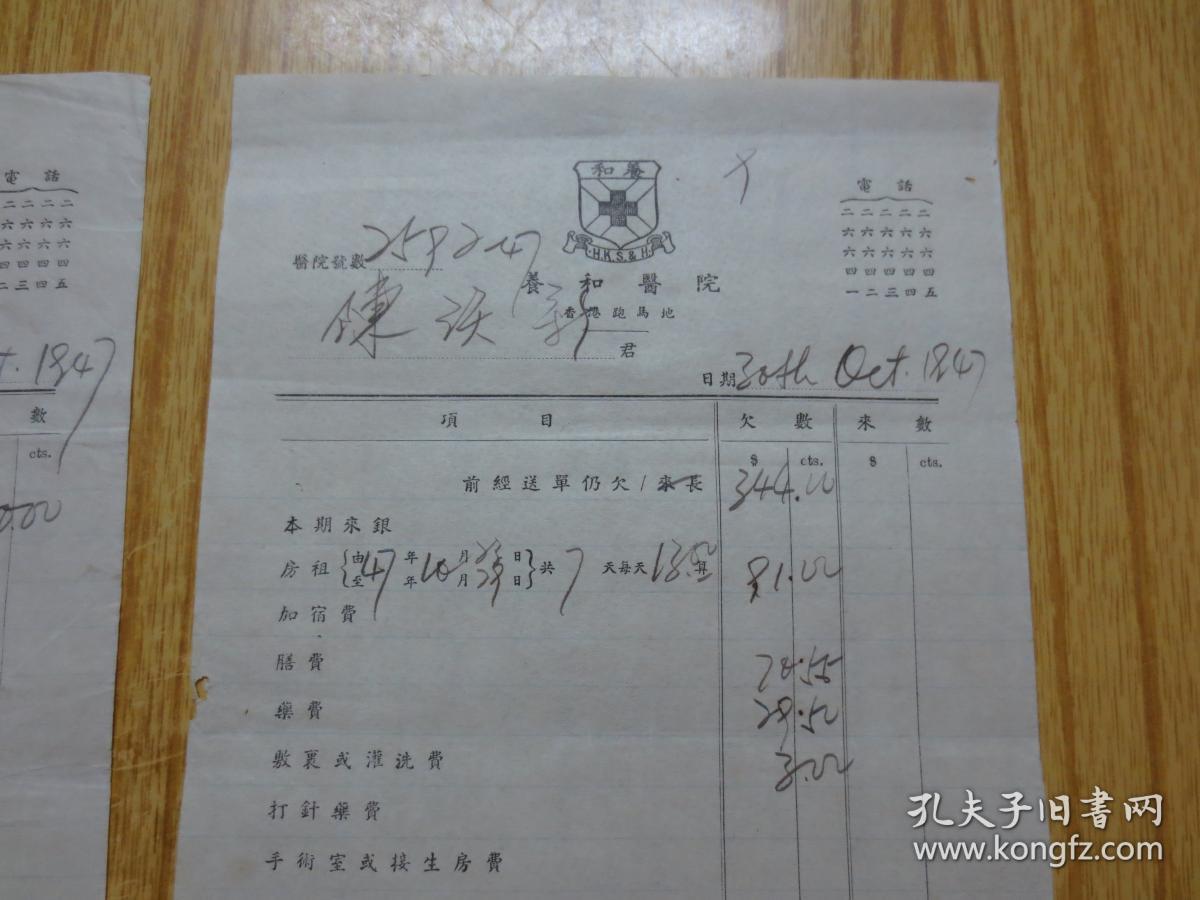 電話
二二二二
六六六六
六六六六
四四四四
二三四五
t. 1947
數
cts.
0.00
和養
H.K.S.&H.
電話
二二二二二
六六六六六
六六六六六
四四四四四
一二三四五
醫院號數 2592-47
養和醫院
香港跑馬地
陳 君
日期 30th Oct. 1947
項目 欠數 來數
$ cts. $ cts.
前經送單仍欠/來長 344.00
本期來銀
房租{由至 47 年年 10 月月 日日}共 7 天每天 13.00 算 91.00
加宿費
膳費
藥費 28.50
敷裏或灌洗費 3.00
打針藥費
手術室或接生房費
孔夫子旧书网
www.kongfz.com